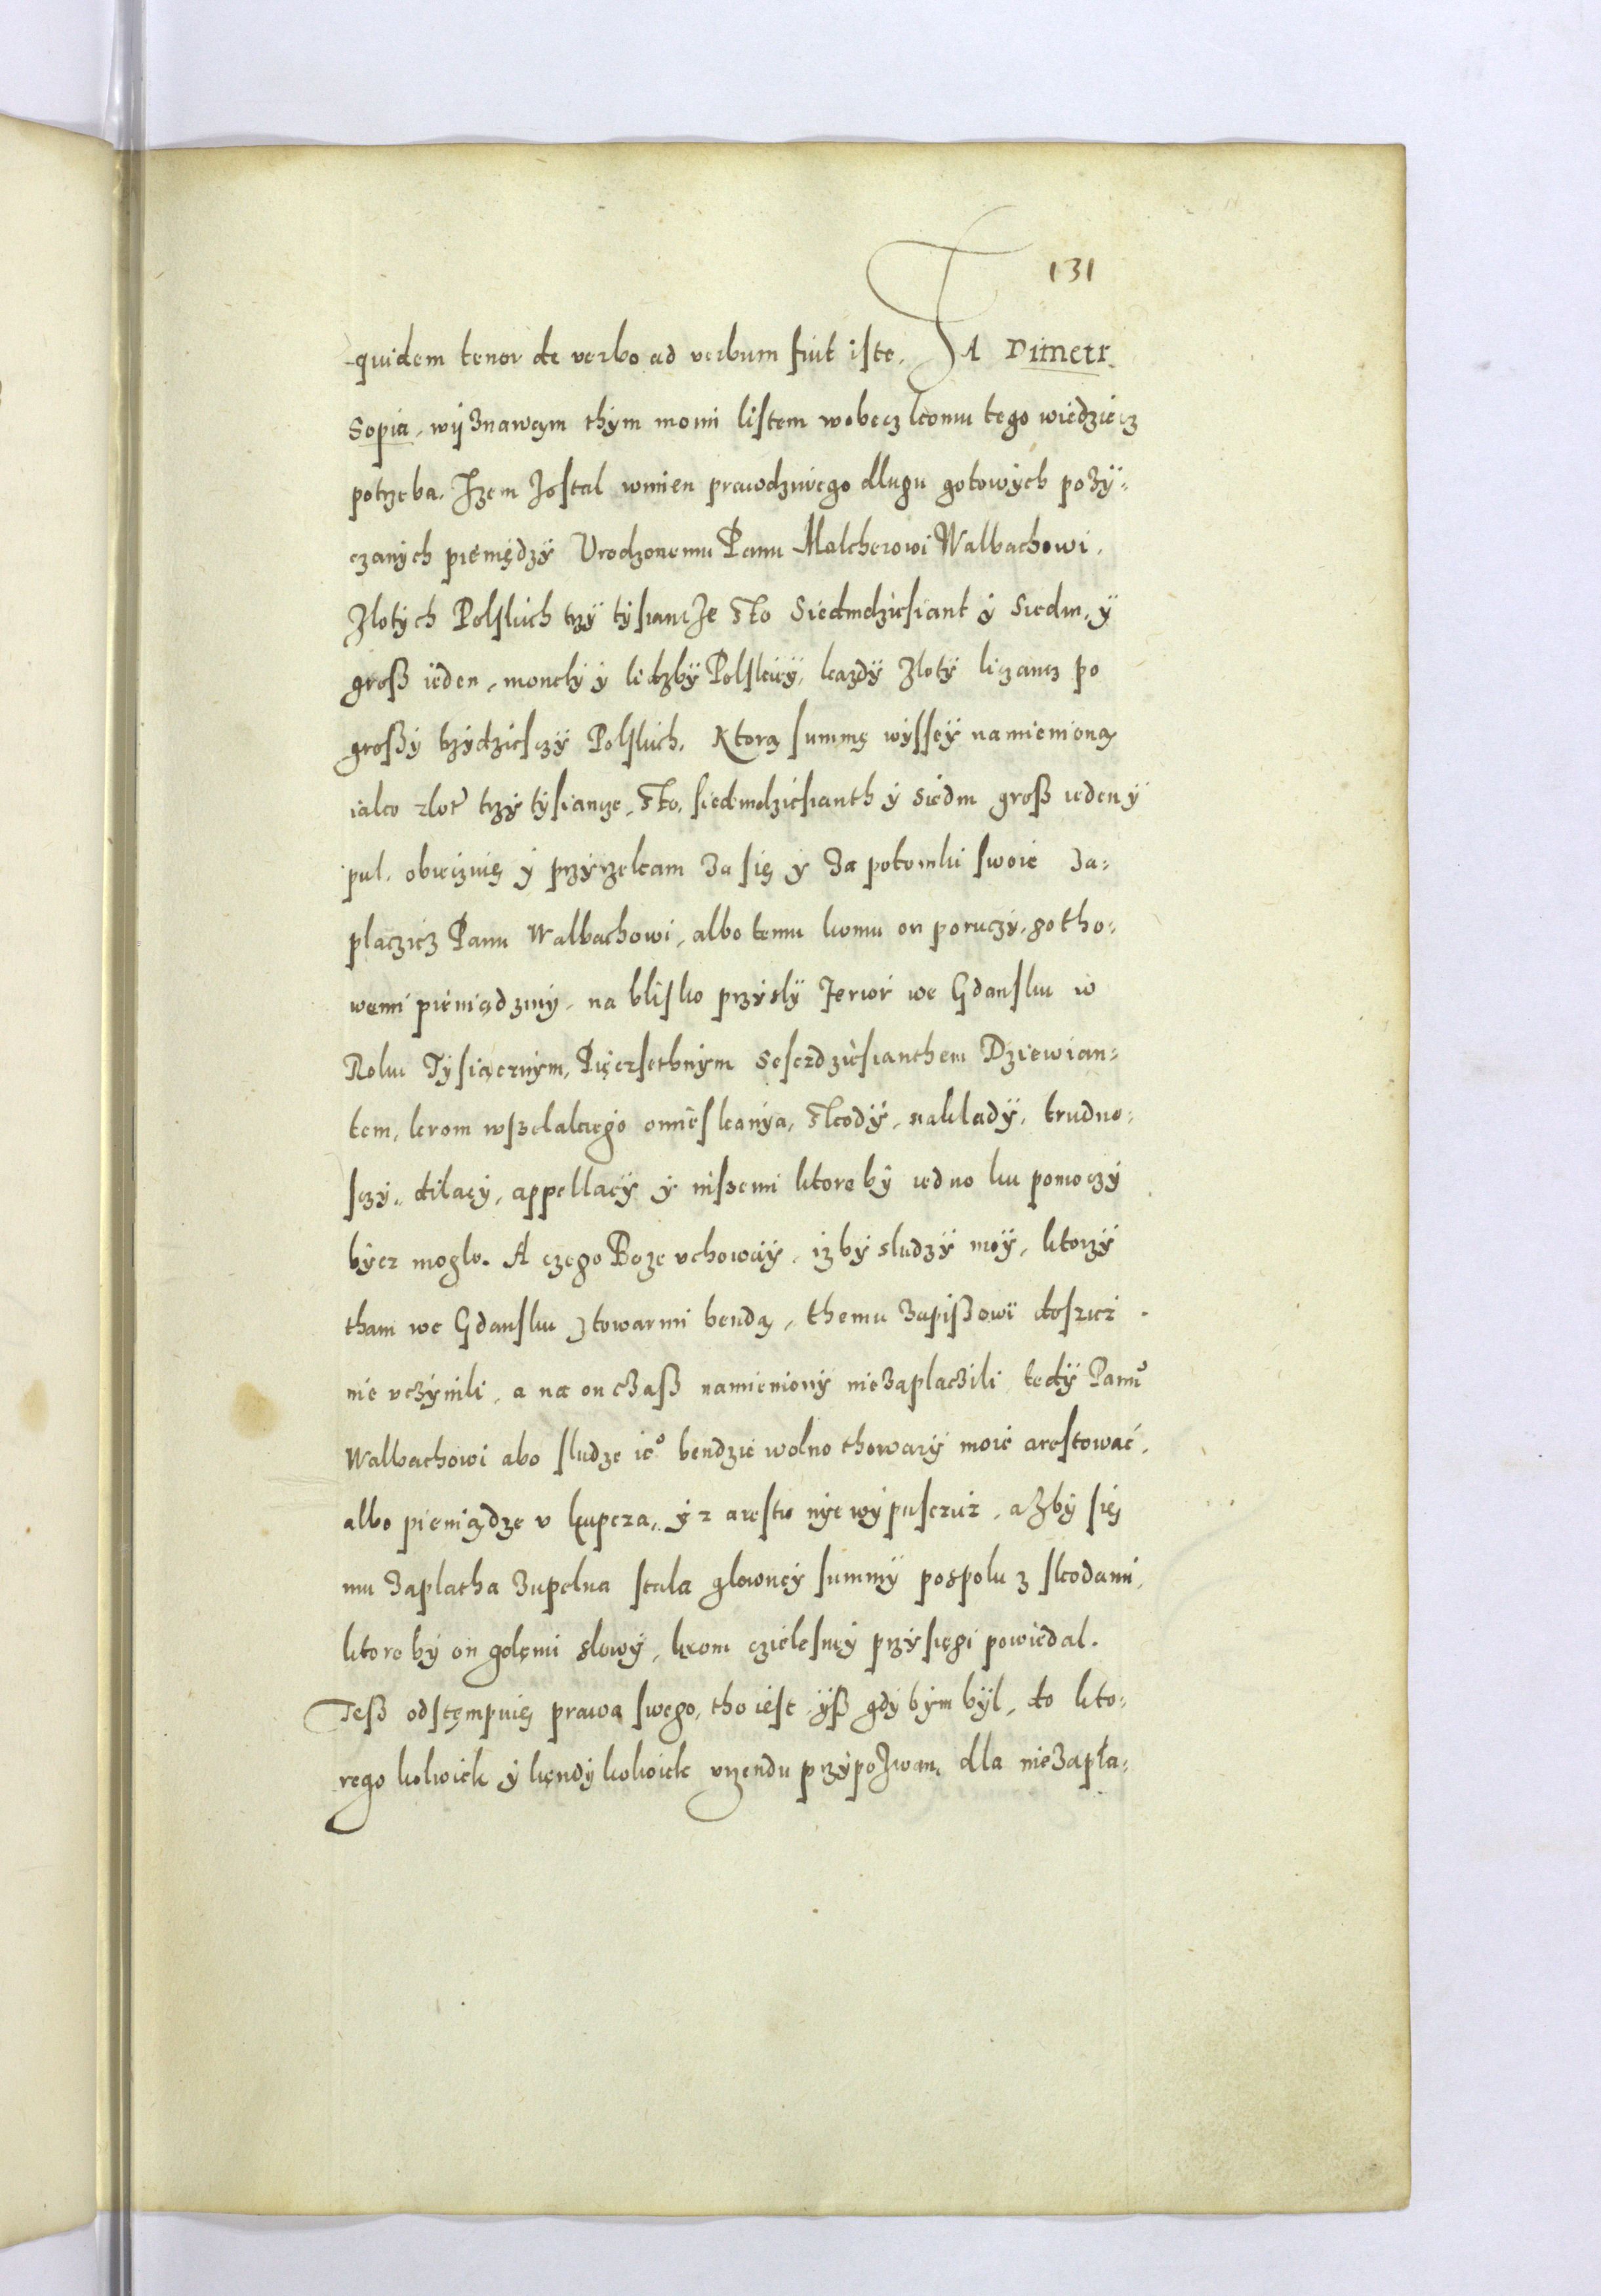 131
quidem tenor de verbo ad verbum fuit iste. JA Dimetr
Sopia, wyznawam thym moim listem wobecz komu tego wiedziecz
potrzeba. Izem zostal winien prawdziwego dlugu gotowych pozy-
czanych pieniędzy Urodzonemu Panu Malcherowi Walbachowi,
Zlotych Polskich trzy tysiancze Sto Siedmdziesiant y Siedm, y
groß ieden, monety y liczby Polskiey, kazdy zloty licząncz po
großy trzydziesczy Polskich. Ktorą summę wyssey namienioną
iako zlot trzy tysiancze, Sto, siedmdziesianth y siedm groß ieden y
pul. obieczuię y przyrzekam za się y za potomki swoie za-
placzicz Panu Walbachowi, albo temu komu on poruczy, gotho-
wemi pieniądzmy, na blisko przysly Jerwy we Gdansku w
Roku Tysiącznym, Pięczsethnym Sesczdziesianthem Dziewian-
tem, krom wszelakiego omieskanya, Skody, naklady, trudno-
sczy, dilacy, appellacy y niszemi ktore by iedno ku pomoczy
bycz moglo. A czego Boze uchoway, iz by sludzy moy, ktorzy
tham we Gdansku z towarmi bendą, themu zapißowi dosicz
nie uczynili, a na on czaß namieniony niezaplaczili, tedy Panu
Walbachowi abo sludze ie° bendzie wolno thowary moie arestować,
albo pieniądze u kupcza, y z arestu nye wypusczicz, aż by się
mu zaplatha zupelna stala glowney summy pospolu z skodami,
ktore by on golemi slowy, krom czielesney przysięgi powiedal.
Teß odstempuię prawa swego, tho iest yß gdy bym byl, do kto-
rego kolwiek y kędy kolwiek urzendu przypozwan, dla niezapla-